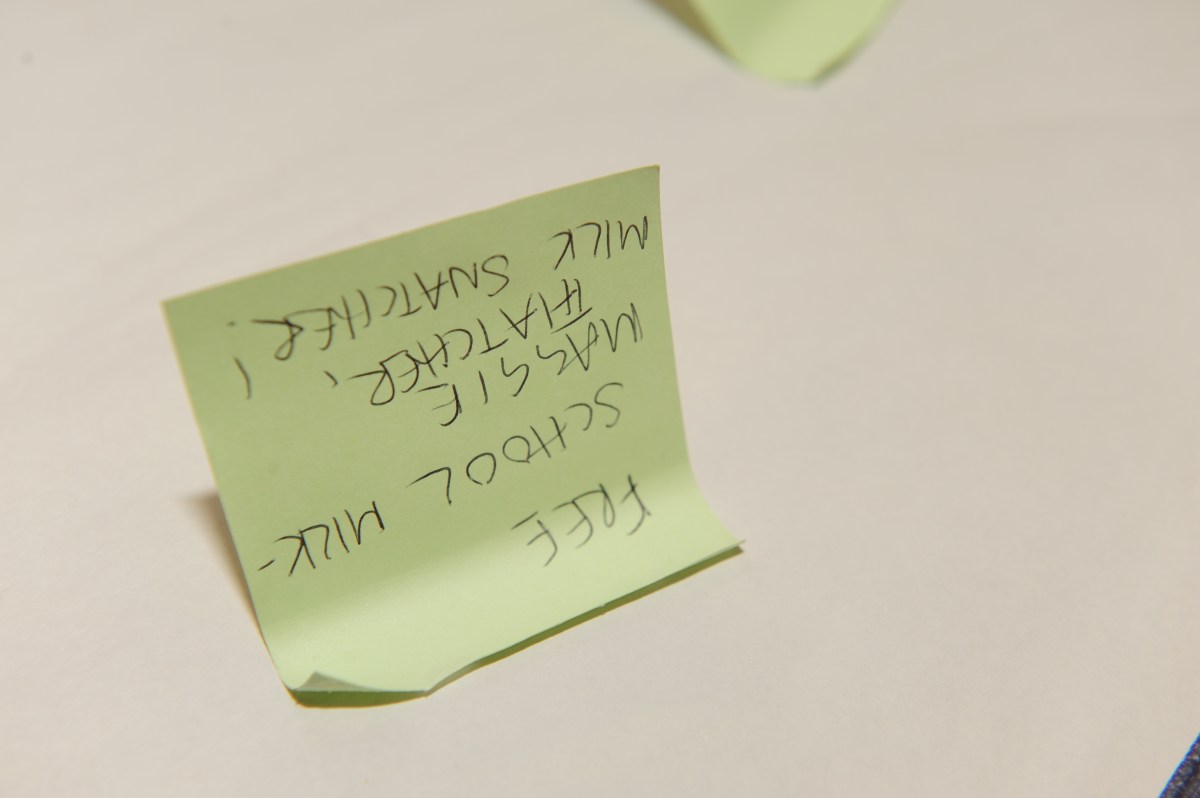 FREE
SCHOOL MILK -
MAGGIE
THATCHER,
MILK SNATCHER!